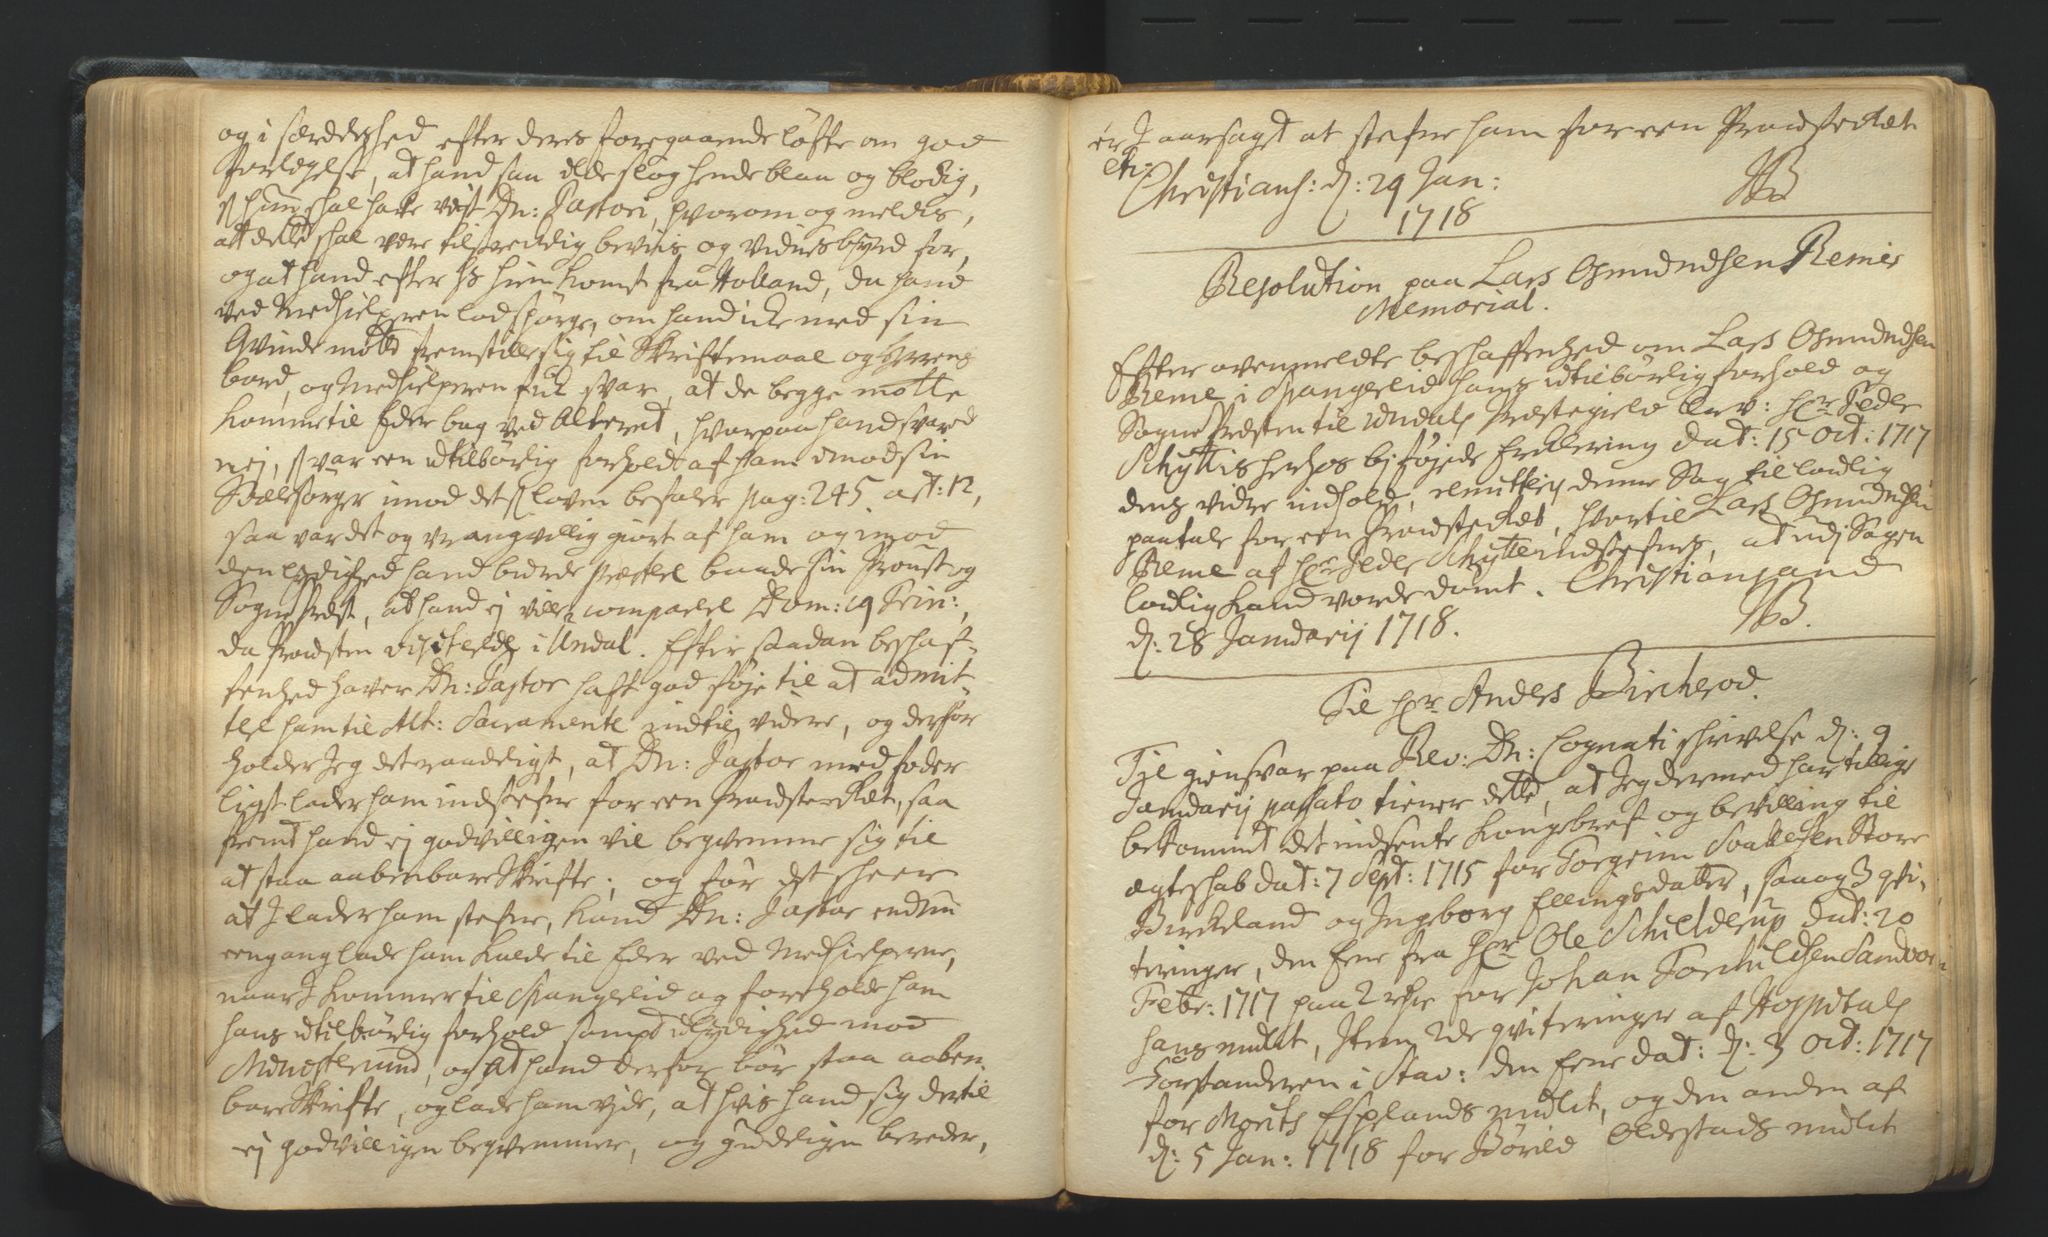 og i særdelished efter deres foregaaende løfte om god
forligelse, at hand saa ilde slog hende blaa og blodig,
hun shal hafve viist Dn: Pastori, hvorom og meldis,
at dette shal være tilstrechelig beviis og vidnesbyrd for,
og at hand efter hs hiemkomst fra Holland, da hand
ved Medhielperen lod spørge, om hand iche med sin
Qvinde motte fremstille sig til Skriftemaal og Herrens
bord, og Medhielperen fich svar, at de begge motte
komme til Eder bag ved Alteret, hvorpaa hand svared
nej, var een utilbørlig forhold af ham imod sin
Siælesørger imod det loven befaler pag: 245 art: 12,
saa var det og vrangvillig giort af ham og imod
den lydighed hand burde præstere baade sin Provst og
SognePræst, at hand ej ville comparere Dom: 19 Trin:,
da Provsten visiterede i Undal. Efter saadan beshaf-
fenhed haver Dn: Pastor haft god føje til at admit-
tere ham til Alt: Sacramente indtil videre, og derfor
holder Jeg det raadeligt, at Dn: Pastor med forder
ligst lader ham indstefne for een Provste Ret, saa
fremt hand ej godvilligen vil beqvemme sig til
at staa aabenbare Skrifte; og før det sheer
at I lader ham stefne, kand Dn: Pastor endnu
eengang lade ham kalde til Eder ved Medhielperne,
naar I kommer til Spangerid og foreholde ham
hans utilbørlig forhold sampt ulydighed mod
Ministerium, og at hand derfor bør staa aaben-
bare Skrifte, og lade ham vide, at hvis hand sig dertil
ej godvilligen beqvemmer, og gudeligen bereder,
er I aarsaget at stefne ham for een Provste Ret
etc:
Christians: d: 29 Jan:
1718
Resolution paa Lars Osmundsen Remis
Memorial.
Efter ovenmeldte beshaffenhed om Lars Osmundsen
Reme i Spangerid hans utilbørlig forhold og
SognePræsten til Undals Præstegield Hr: Peder
Schyttis herhos biføjede Erklering dat: 15 Oct: 1717
dens vidre indhold, remitteris denne Sag til lovlig
paatale for een Provste Ret, hvortil Lars Osmundsen
Reme af Hr Peder Schytte indstefnes, at udj Sagen
lovlig kand vorde dømt. Christiansand
d: 28 Januarij 1718.
Til Hr Anders Bircherod.
Til giensvar paa Rev: Dn: Cognati skrivelse d: 9
Januarij passato tiener dette, at Jeg dermed har tillige
bekommet det indsente Kongebref og bevilling til
ægteshab dat: 7 Sept: 1715 for Torgeim Soalesen Store
Birkeland og Ingeborg Ellingsdatter, saa og 3 qvi-
teringer, den Eene fra Hr Ole Schielderup dat: 20
Febr: 1717 paa 2 rdr for Johan Torkildsen Sandvo-
hans mulct, Item 2de qviteringer af Hospitals
Forstanderen i Stav: den Eene dat: d: 3 Oct: 1717
for Morits Esplands mulct, og den anden af
d: 5 Jan: 1718 for Børild Oldestads mulct